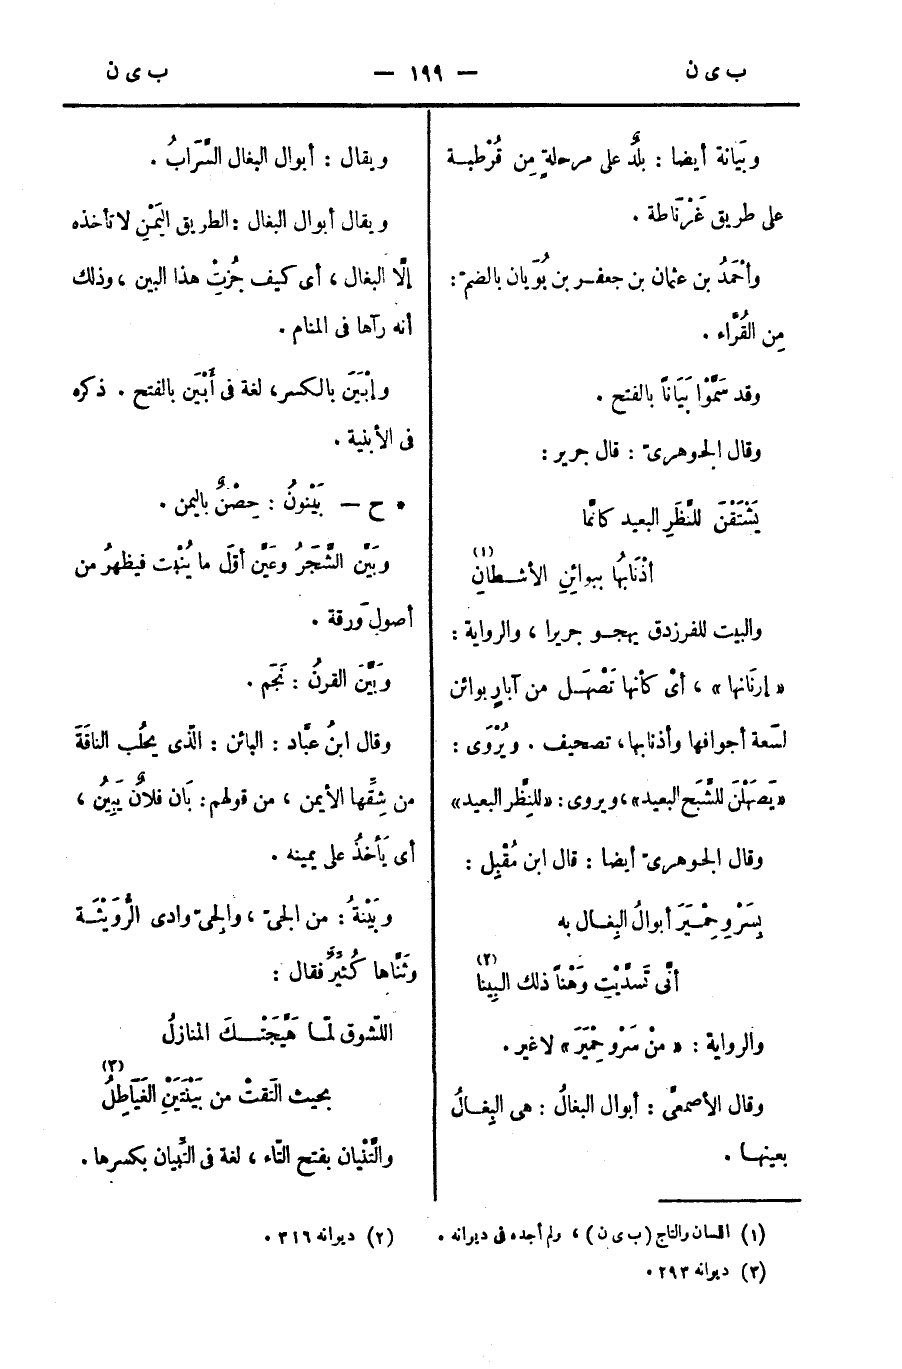 ب ى ن — ١٩٩ — ب ى ن
وبَيَانة أيضا : بلدٌ على مرحلةٍ مِن قُرْطبة
على طريق غَرْنَاطة .
وأحْمَدُ بن عثمان بن جعفر بن بُويَان بالضمّ :
مِن القُرَّاء .
وقد سَمَّوْا بَيَاناً بالفتح .
وقال الجوهرىّ : قال جرير :
يَشْتَقْنَ للنَّظَرِ البعيد كأنّما
أذْنَابُها ببوائنِ الأشطانِ (١)
والبيت للفرزدق يهجو جريرا ، والرواية :
« إرنَانها » ، أىْ كأنها تَصْهَل من آبارٍ بوائن
لسَعة أجوافها وأذنابها، تصحيف . ويُرْوَى :
« يَصهَلْنَ للشَّبَح البعيد»، ويروى : «للنِّظَر البعيد»
وقال الجوهرىّ أيضا : قال ابن مُقْبِل :
بِسَرْوِ حِمْيَرَ أبوالُ البِغال به
أنَّى تَسَدَّيْتِ وَهْناً ذلك البِينا (٢)
والرواية : « مِنْ سَرْوِ حِمْيَرَ » لا غير .
وقال الأصمعىّ : أبوال البغالُ : هى البِغالُ
بعينها .
ويقال : أبوال البغال السَّرَابُ .
ويقال أبوال البغال : الطريق اليَمْنِ لا تأخذه
إلَّا البغال ، أى كيف جُزتِ هذا البين ، وذلك
أنه رآها فى المنام .
وإبْيَنَ بالكسر، لغة فى أَبْيَن بالفتح . ذكره
فى الأبنية .
* ح — بَيْنونُ : حِصْنٌ باليمن .
وبَيَّن الشَّجَرُ وعَيَّن أوَّلَ ما يُنْبِت فيظهرُ من
أصولِ ورقة .
وبَيَّنَ القرنُ : نَجَم .
وقال ابنُ عبَّاد : البائن : الّذى يحلُب الناقَةَ
من شِقِّها الأيمن ، من قولهم : بَان فلانٌ يَبِينُ ،
أى يَأخذُ على يمينه .
وبَيْنةُ : من الجىّ ، والجىّ وادى الرُّوَيْثَة
وثَنَّاها كُثيِّرٌ فقال :
اللشوق لمّا هَيَّجَتْكَ المنازلُ
بحيث الْتَقتْ من بَيْنَتَيْنِ الغَيَاطِلُ (٣)
والتَّبْيان بفتح التّاء ، لغة فى التِّبيان بكسرها .
(١) اللسان والتاج (ب ى ن) ، ولم أجده فى ديوانه . (٢) ديوانه ٣١٦ .
(٣) ديوانه ٢٩٣ .